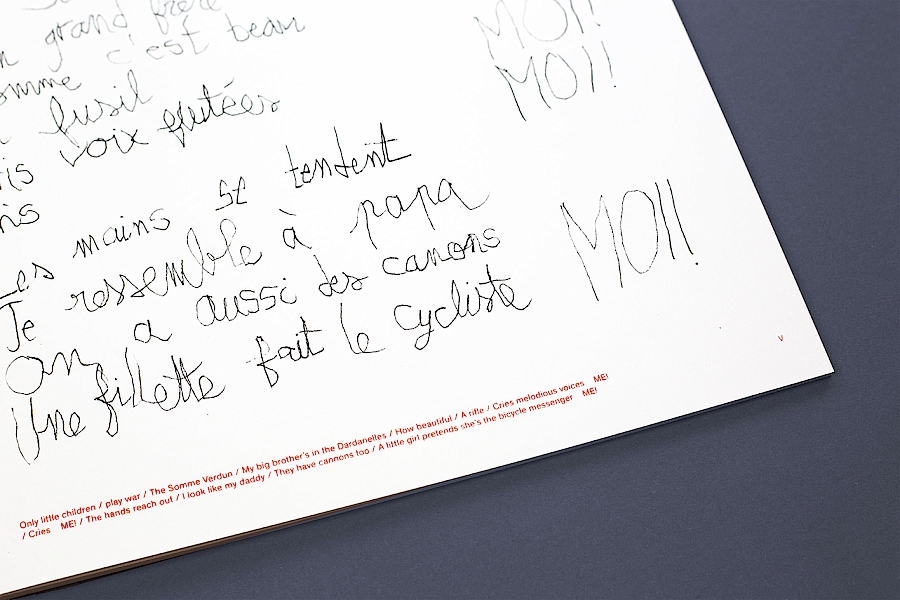 n grand frère
omme c'est beau
fusil
is voix flutées
ns
MOI!
MOI!
Les mains se tendent
Je ressemble à papa
On a aussi des canons
Une fillette fait le cycliste
MOI!
V
Only little children / play war / The Somme Verdun / My big brother's in the Dardanelles / How beautiful / A rifle / Cries melodious voices ME!
/ Cries ME! / The hands reach out / I look like my daddy / They have cannons too / A little girl pretends she's the bicycle messenger ME!